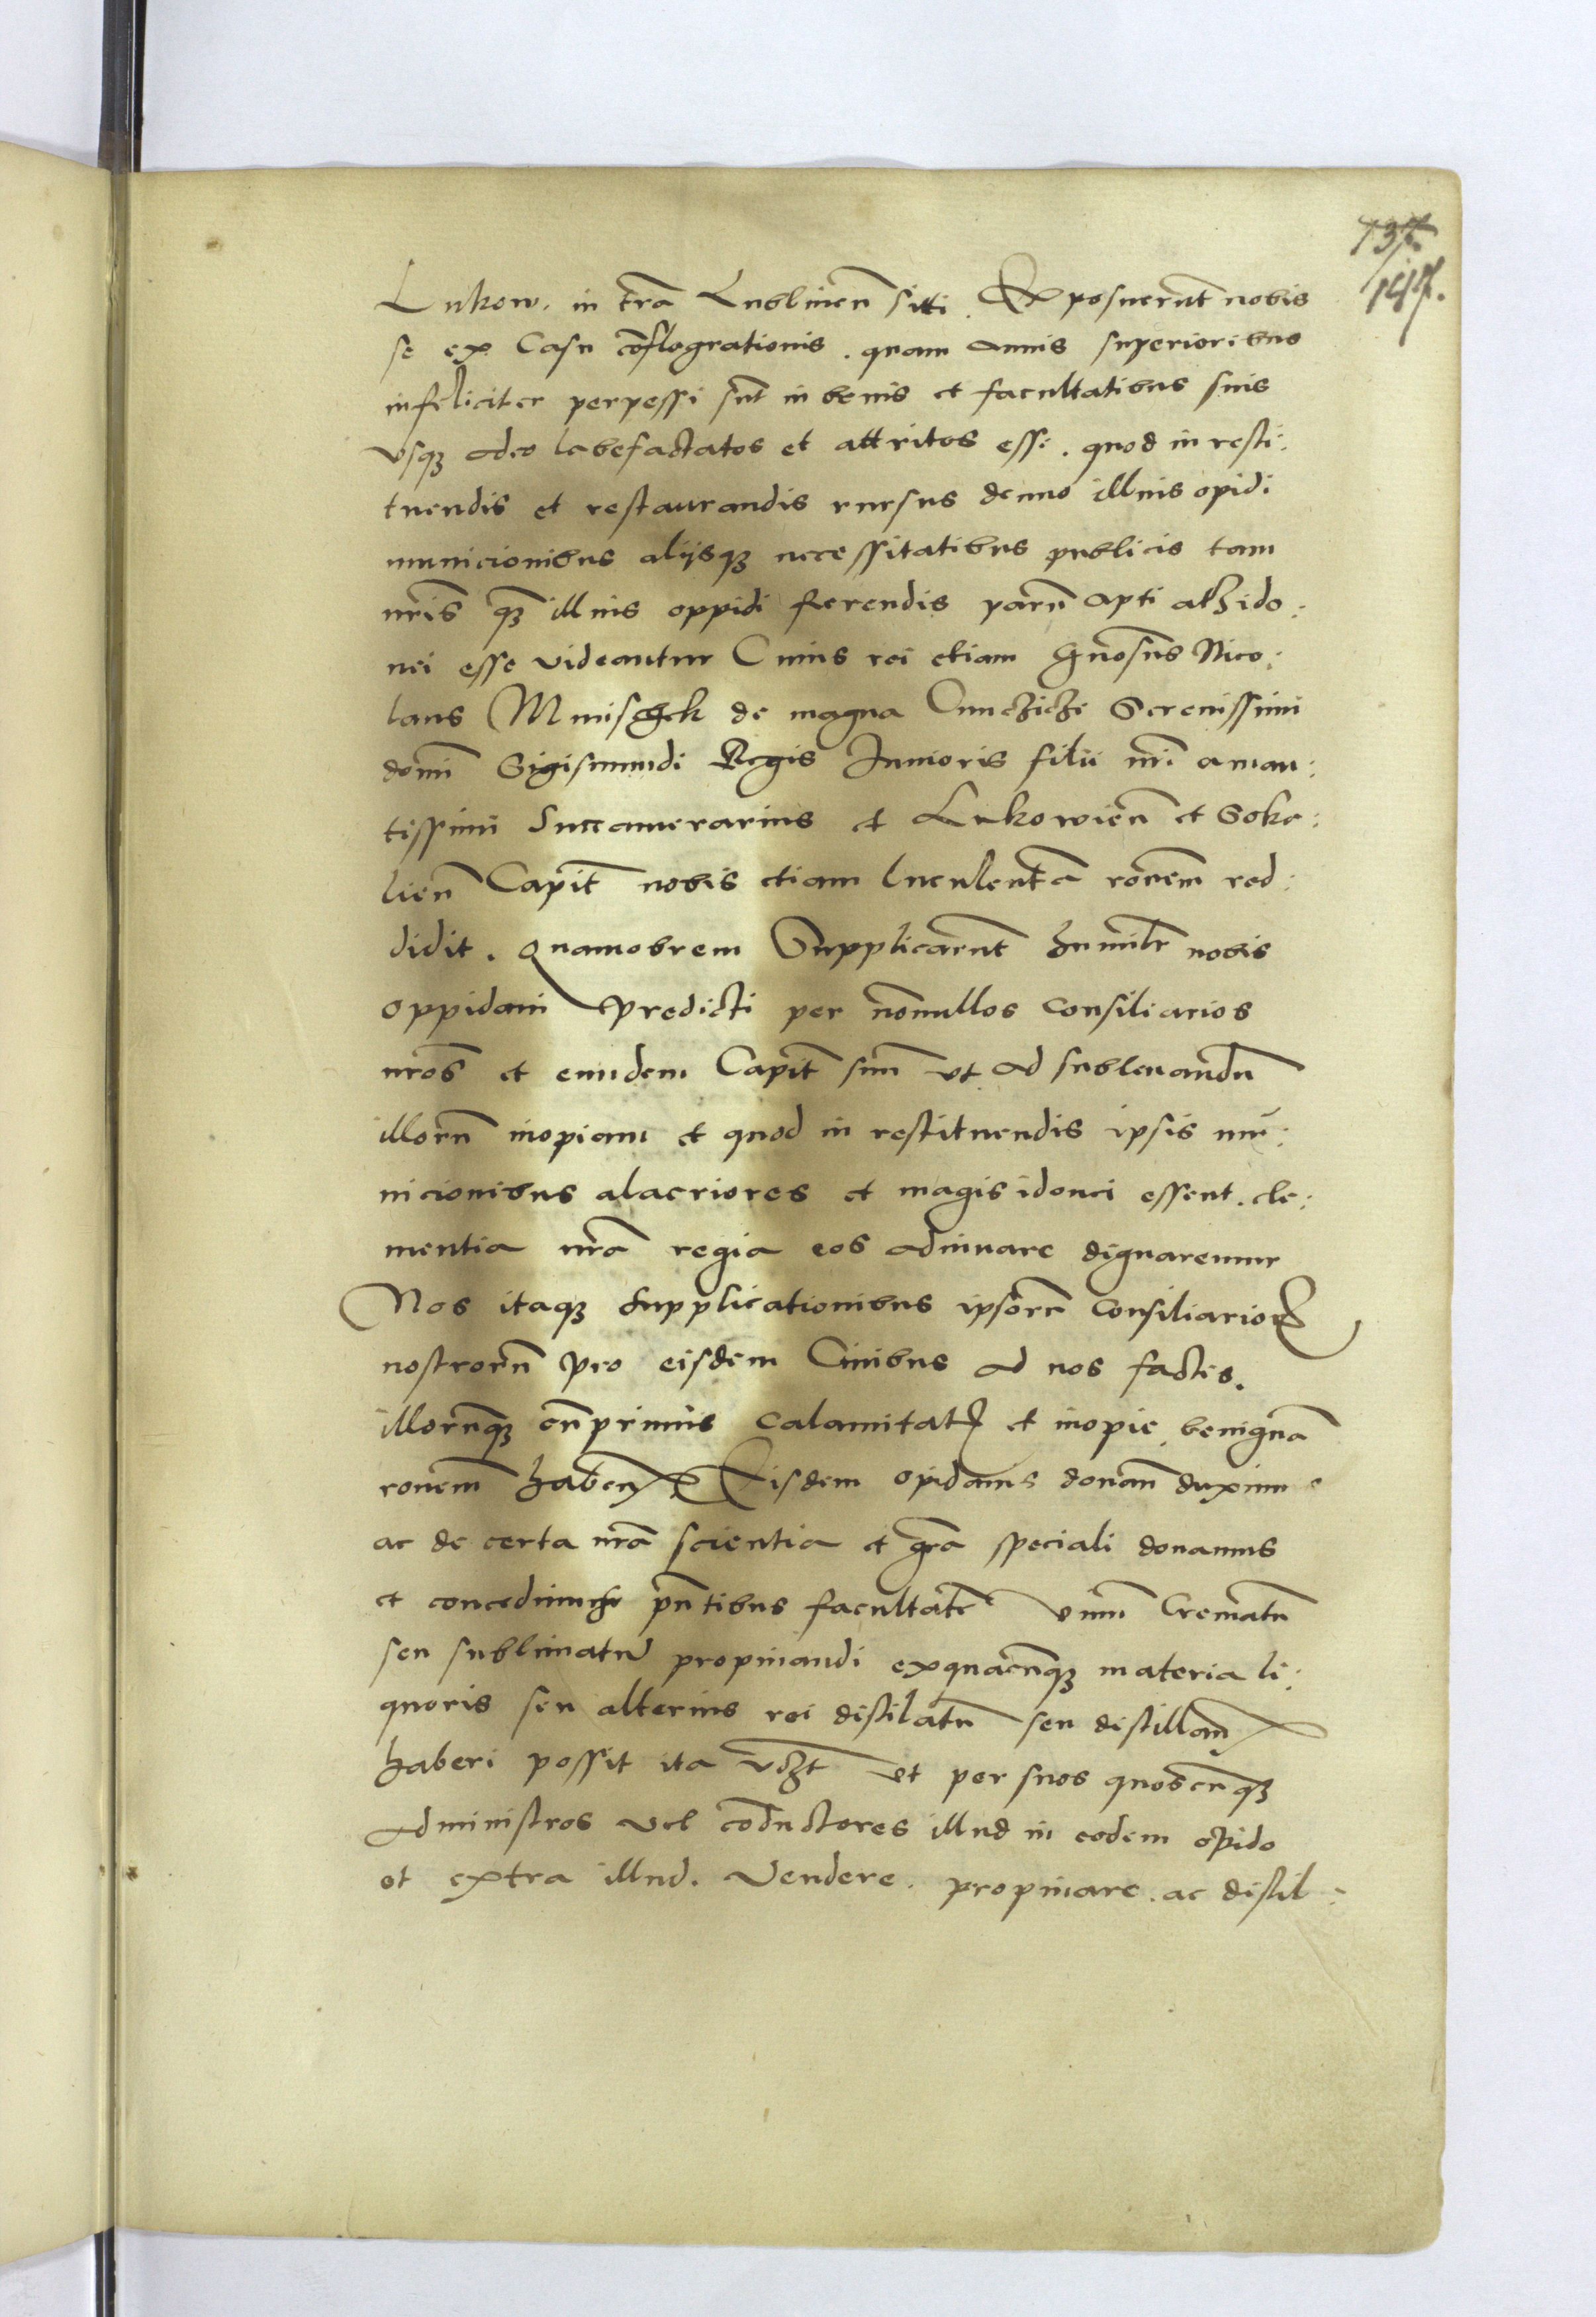 137.
147.
Lukow. in tr̄a Lublineñ sitti. Exposuerūt nobis
se ex Casu cōflogrationis. quam annis superioribus
infeliciter perpessi sūt in bonis et facultatibus suis
vsqꝫ adeo labefactatos et attritos esse. quod in resti:
tuendis et restaurandis rursus denuo illius opidi
municionibus alijsqꝫ necessitatibus publicis tam
nr̄is qꝫ illius oppidi ferendis parū apti atqꝫ ido:
nei esse videantur Cuius rei etiam Gn̄osus Nico:
laus Mnischek de magna Cunczicze Serenissimi
domī Sigismundi Regis Junioris filii nr̄i aman:
tissimi Succamerarius et Lukowieñ et Soko:
lieñ Capit̄ nobis etiam luculentā roñem red:
didit. Quamobrem Supplicarūt humilr̄ nobis
oppidani predicti per nōnullos consiliarios
nr̄os et eundem Capit̄ suū vt ad subleuandū
illorū inopiam et quod in restituendis ipsis mu:
nicionibus alacriores et magis idonei essent. cle:
mentia nr̄a regia eos adiuuare dignaremur
Nos itaqꝫ supplicationibus ipsorū consiliarioꝝ
nostrorū pro eisdem Ciuibus ad nos factis.
illorūqꝫ cūprimis calamitatꝭ et inopie benignā
roñem habeñ Eisdem opidanis donañ duximus
ac de certa nr̄a scientia et gr̄a speciali donamus
et concedimus pñtibus facultatē vinū Crematū
seu sublimatū propinandi exquacūqꝫ materia li:
quoris seu alterius rei distilatū seu distillañ
haberi possit ita vꝫt vt per suos quoscūqꝫ
administros vel cōductores illud in eodem opido
et extra illud. vendere. propinare. ac distil: